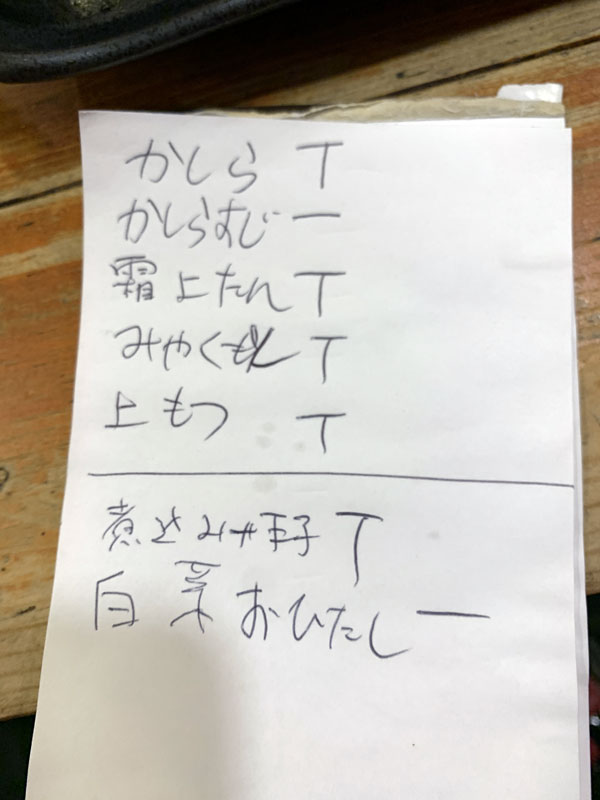 かしら T
かしらすじ 一
霜上たん T
みやく T
上もつ T
煮込み T
白菜おひたし 一